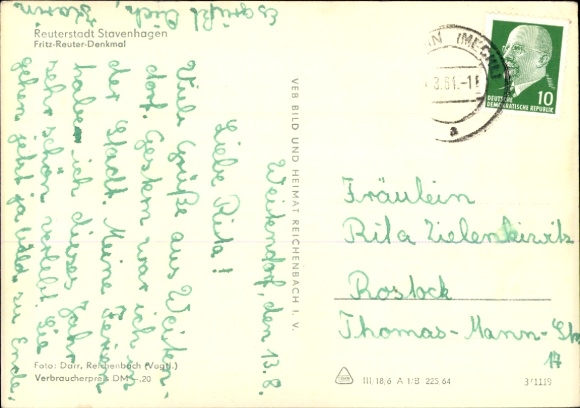 Reuterstadt Stavenhagen
Fritz-Reuter-Denkmal
Weitendorf, den 13.8.
Liebe Rita!
Viele Grüße aus Weiten-
dorf. Gestern war ich in
der Stadt. Meine Ferien
habe ich dieses Jahr
sehr schön verlebt. Sie
gehen jetzt ja bald zu Ende.
Es grüßt Dich,
VEB BILD UND HEIMAT REICHENBACH I. V.
(MECKL
8.61.-1
a
DEUTSCHE
DEMOKRATISCHE REPUBLIK
10
Fräulein
Rita Zielenkiwitz
Rostock
Thomas-Mann-St
17
Foto: Darr, Reichenbach (Vogtl.)
Verbraucherpreis DM -,20
III/18/6 A 1/B 225/64
3/1119